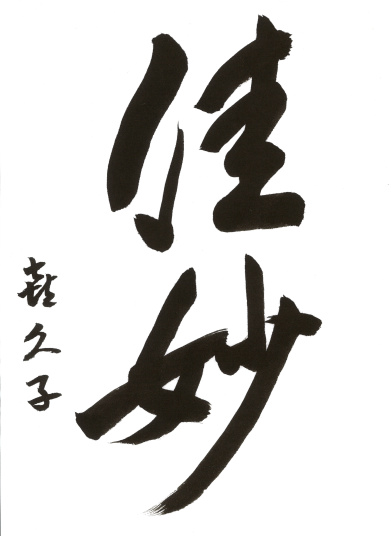 佳妙
喜久子